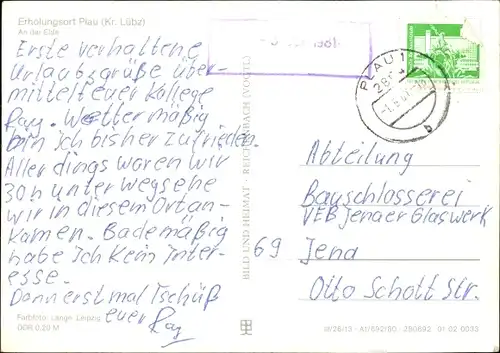 Erholungsort Plau (Kr. Lübz)
An der Elde
Erste verhaltene
Urlaubsgrüße über-
mittelt euer Kollege
Ray. Wettermäßig
bin ich bisher zufrieden.
Allerdings waren wir
30h unterwegs ehe
wir in diesem Ort an-
kamen. Bademäßig
habe ich kein Inter-
esse.
Dann erstmal Tschüß
euer Ray
Farbfoto: Lange, Leipzig
DDR 0,20 M
BILD UND HEIMAT · REICHENBACH (VOGTL)
PLAU 1
28
b
Abteilung
Bauschlosserei
VEB Jenaer Glaswerk
69 Jena
Otto Schott Str.
01 02 0033